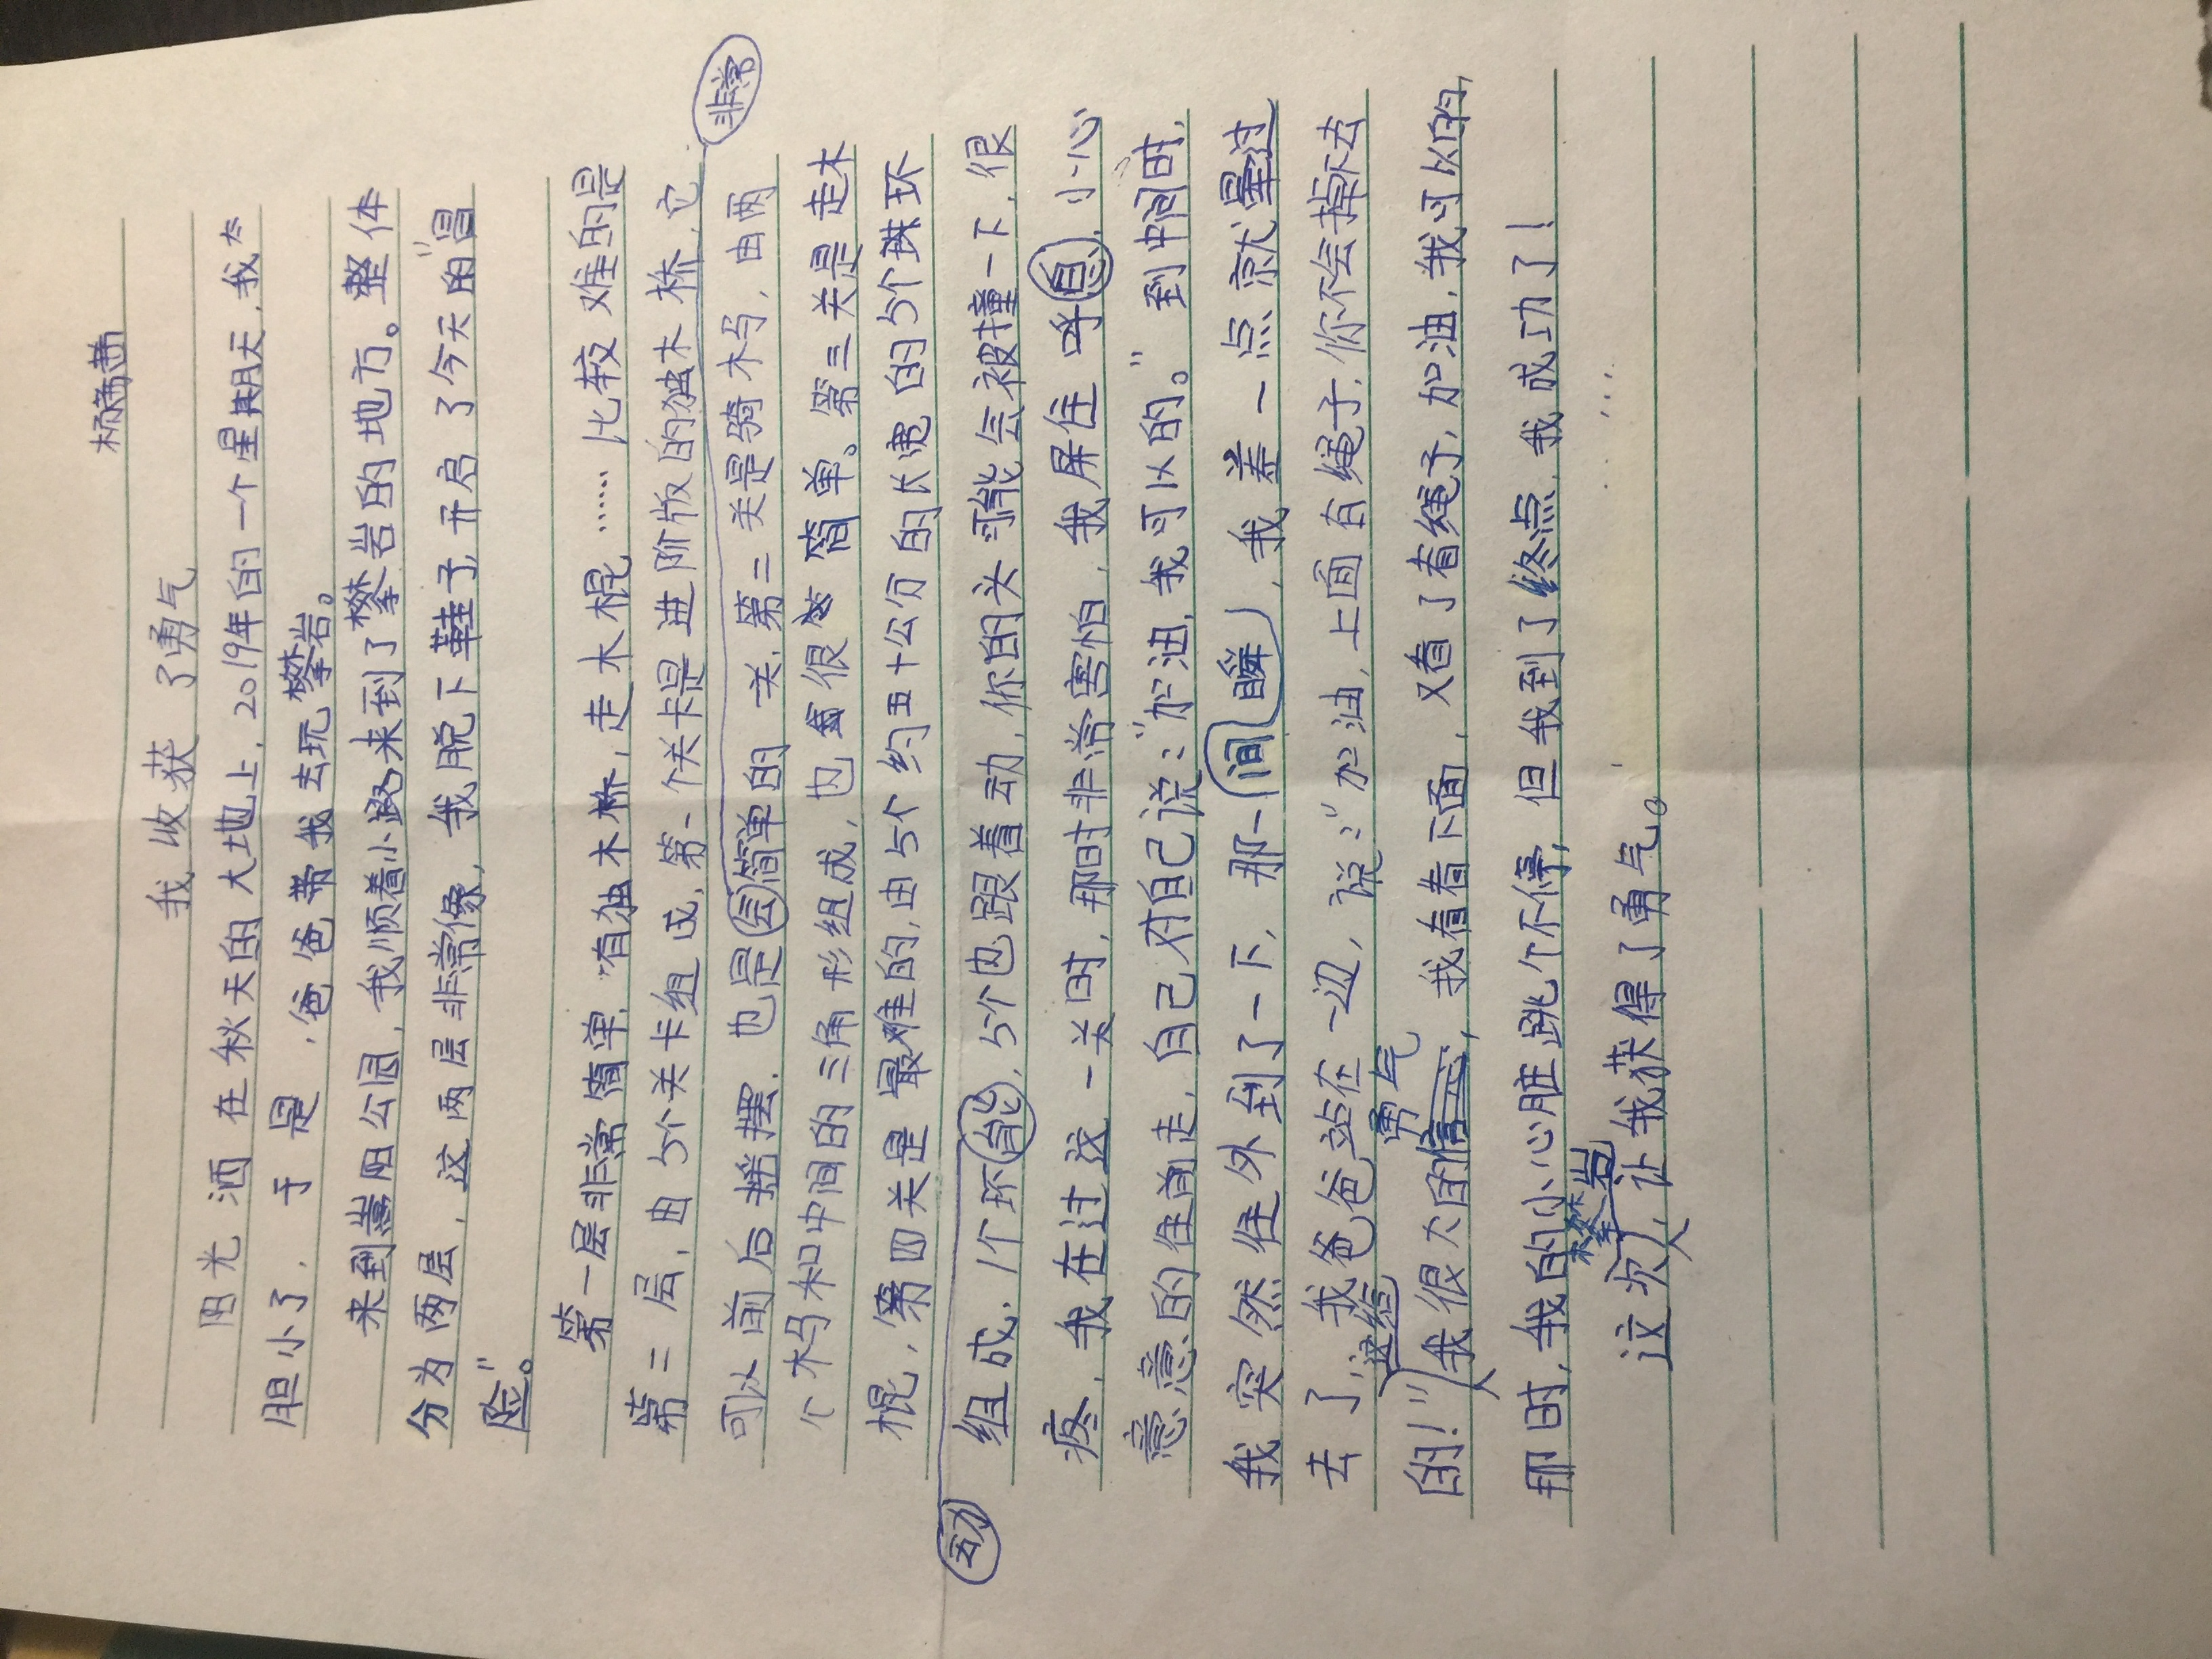 我收获了勇气
阳光洒在秋天的大地上，2019年的一个星期天，我太
胆小了，于是，爸爸带我去玩攀岩。
来到朝阳公园，我顺着小路来到了攀岩的地方。整体
分为两层，这两层非常像，我脱下鞋子，开启了今天的“冒
险”。
第一层非常简单，有独木桥，走木棍……比较难的是
第二层，由5个关卡组成，第一个关卡是进阶版的独木桥，它
非常
可以前后摇摆，也是会简单的关，第二关是骑木马，由两
个木马和中间的三角形组成，也很简单。第三关是走木
棍，第四关是最难的，由5个约五十公分的长宽的5个环
组成，1个环能，5个也跟着动，你的头可能会被撞一下，很
动
疼，我在过这一关时，那时非常害怕，我屏住呼息，小心
意意的往前走，自己对自己说：“加油，我可以的。”到中间时，
我突然往外到了一下，那一间瞬，我差一点就晕过
去了，我爸爸站在一边，说：“加油，上面有绳子，你不会掉下去
这给 勇气
的！”我很大的信心，我看看下面，又看了看绳子，加油，我可以的，
那时，我的小心脏跳个不停，但我到了终点，我成功了！
攀岩
这次，让我获得了勇气。